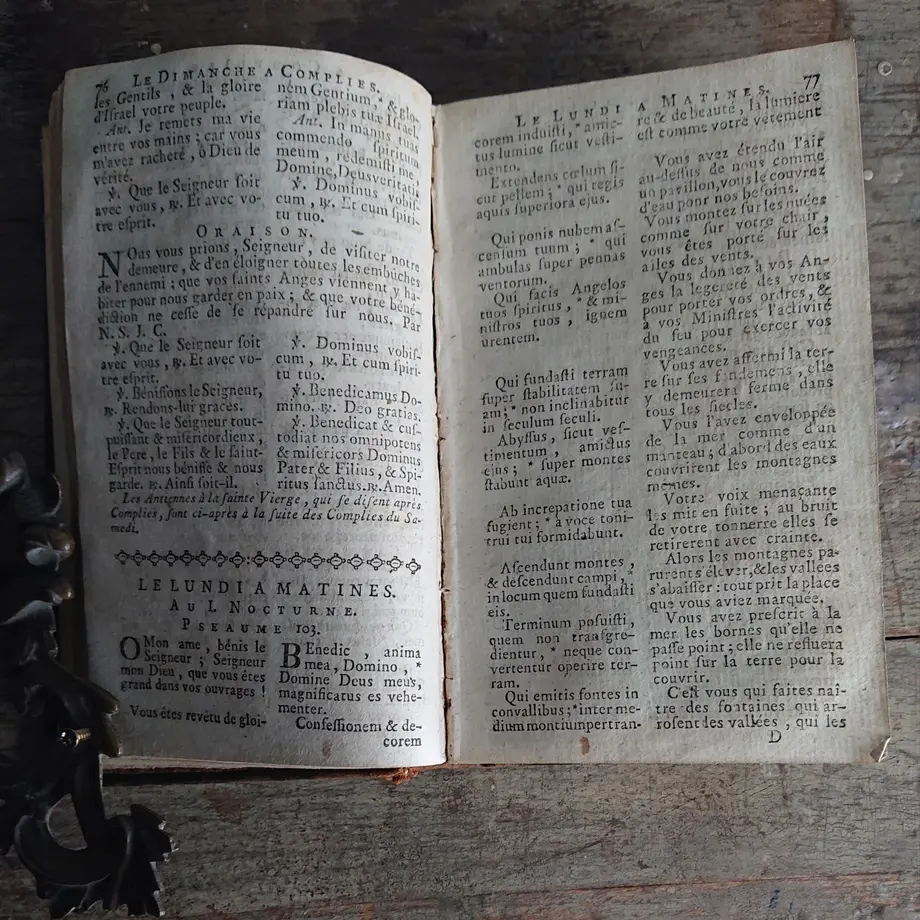 76 LE DIMANCHE A COMPLIES.
les Gentils , & la gloire
d'Iſrael votre peuple.
Ant. Je remets ma vie
entre vos mains ; car vous
m'avez racheté , ô Dieu de
vérité.
℣. Que le Seigneur ſoit
avec vous , ℟. Et avec vo-
tre eſprit.
ném Gentium , * & glo-
riam plebis tuæ Iſrael.
Ant. In manus tuas
commendo ſpiritum
meum , redemiſti me ,
Domine, Deus veritatis
℣. Dominus vobiſ-
cum , ℟. Et cum ſpiri-
tu tuo.
ORAISON.
NOus vous prions , Seigneur , de viſiter notre
demeure , & d'en éloigner toutes les embûches
de l'ennemi ; que vos ſaints Anges viennent y ha-
biter pour nous garder en paix ; & que votre béné-
diction ne ceſſe de ſe répandre ſur nous. Par
N. S. J. C.
℣. Que le Seigneur ſoit
avec vous , ℟. Et avec vo-
tre eſprit.
℣. Béniſſons le Seigneur,
℟. Rendons-lui graces.
℣. Que le Seigneur tout-
puiſſant & miſéricordieux ,
le Pere, le Fils & le ſaint-
Eſprit nous béniſſe & nous
garde. ℟. Ainſi ſoit-il.
℣. Dominus vobiſ-
cum , ℟. Et cum ſpiri-
tu tuo.
℣. Benedicamus Do-
mino. ℟. Deo gratias.
℣. Benedicat & cuſ-
todiat nos omnipotens
& miſericors Dominus
Pater & Filius , & Spi-
ritus ſanctus. ℟. Amen.
Les Antiennes à la ſainte Vierge, qui ſe diſent après
Complies, ſont ci-après à la ſuite des Complies du Sa-
medi.
LE LUNDI A MATINES.
AU I. NOCTURNE.
PSEAUME 103.
O Mon ame , bénis le
Seigneur ; Seigneur
mon Dieu , que vous êtes
grand dans vos ouvrages !
Vous êtes revêtu de gloi-
BEnedic , anima
mea, Domino , *
Domine Deus meus,
magnificatus es vehe-
menter.
Confeſſionem & de-
corem
LE LUNDI A MATINES. 77
corem induiſti , * amic-
tus lumine ſicut veſti-
mento.
Extendens cœlum ſi-
cut pellem ; * qui regis
aquis ſuperiora ejus.
Qui ponis nubem aſ-
cenſum tuum ; * qui
ambulas ſuper pennas
ventorum.
Qui facis Angelos
tuos ſpiritus , * & mi-
niſtros tuos , ignem
urentem.
Qui fundaſti terram
ſuper ſtabilitatem ſu-
am ; * non inclinabitur
in ſeculum ſeculi.
Abyſſus , ſicut veſ-
timentum , amictus
ejus ; * ſuper montes
ſtabunt aquæ.
Ab increpatione tua
fugient ; * à voce toni-
trui tui formidabunt.
Aſcendunt montes ,
& deſcendunt campi ,
in locum quem fundaſti
eis.
Terminum poſuiſti ,
quem non tranſgre-
dientur , * neque con-
vertentur operire ter-
ram.
Qui emitis fontes in
convallibus ; * inter me-
dium montium pertran-
re & de beauté , la lumiere
eſt comme votre vêtement
Vous avez étendu l'air
au-deſſus de nous comme
un pavillon, vous le couvrez
d'eau ponr nos beſoins.
Vous montez ſur les nuées
comme ſur votre chair ,
vous êtes porté ſur les
ailes des vents.
Vous donnez à vos An-
ges la legereté des vents
pour porter vos ordres, &
à vos Miniſtres l'activité
du feu pour exercer vos
vengeances.
Vous avez affermi la ter-
re ſur ſes fondemens , elle
y demeurera ferme dans
tous les ſiecles.
Vous l'avez enveloppée
de la mer comme d'un
manteau ; d'abord des eaux
couvrirent les montagnes
memes.
Votre voix menaçante
les mit en fuite ; au bruit
de votre tonnerre elles ſe
retirerent avec crainte.
Alors les montagnes pa-
rurent s'élever, & les vallées
s'abaiſſer : tout prit la place
que vous aviez marquée.
Vous avez preſcrit à la
mer les bornes qu'elle ne
paſſe point ; elle ne reſluera
point ſur la terre pour la
couvrir.
C'eſt vous qui faites naî-
tre des fontaines qui ar-
roſent des vallées , qui les
D